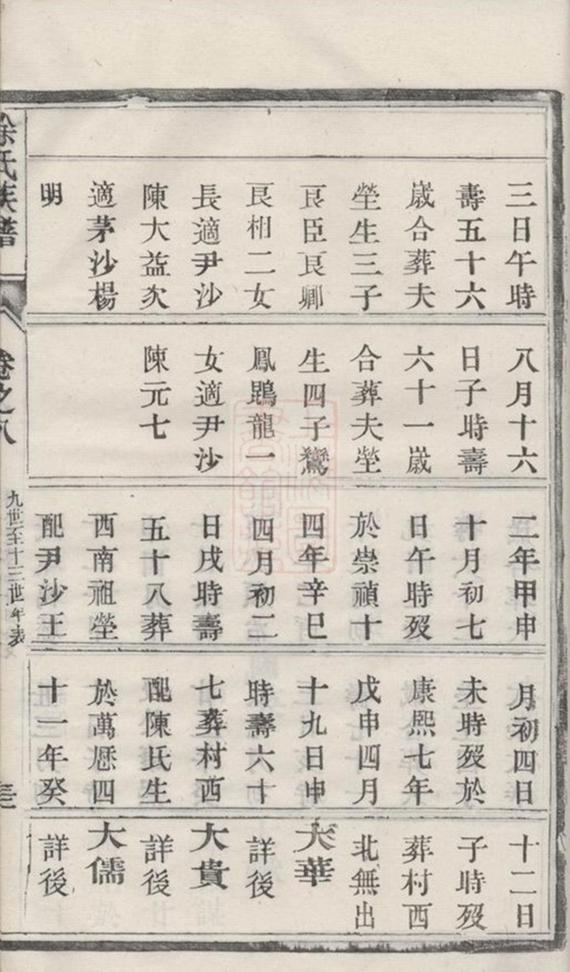 三日午時
壽五十六
歲合葬夫
塋生三子
良臣良卿
良相二女
長適尹沙
陳大益次
適茅沙楊
明
八月十六
日子時壽
六十一歲
合葬夫塋
生四子鸞
鳳鵾龍一
女適尹沙
陳元七
二年甲申
十月初七
日午時歿
於崇禎十
四年辛巳
四月初二
日戌時壽
五十八葬
西南祖塋
配尹沙王
月初四日
未時歿於
康熙七年
戊申四月
十九日申
時壽六十
七葬村西
配陳氏生
於萬曆四
十一年癸
十二日
子時歿
葬村西
北無出
大華
詳後
大貴
詳後
大儒
詳後
徐氏族譜
卷之八
九世至十三世年表